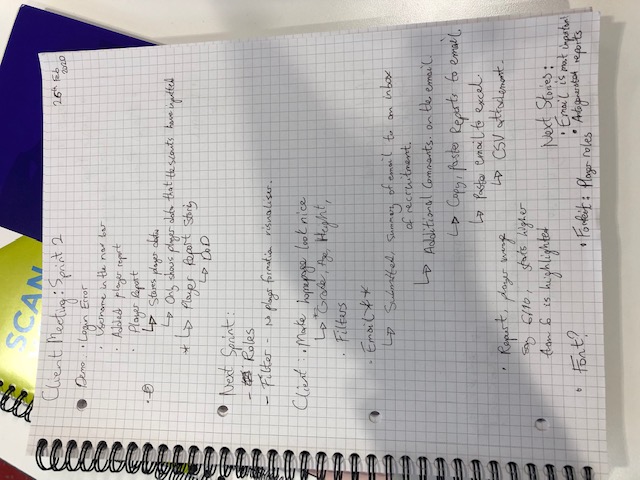 SCAN
Client Meeting: Sprint 2
26th Feb 2020
Demo. • Login Error
• Username in the nav bar
• Added player report
• Player Report
↳ Stores player data
↳ Only shows player data that the scouts have inputted
* ↳ Player Report Story
↳ DoD
Next Sprint:
- Roles
- Filter - No player formation visualiser.
Client: • Make homepage look nice
↳ Grade, Age, Height,
• Filters
• Email **
↳ Submitted, summary of email to an inbox
of recruitment.
↳ Additional Comments. on the email.
↳ Copy, Paste Reports to email
↳ Paste email to excel.
↳ CSV attachment.
• Report, player
say 6/10, stats higher
than 6 is highlighted
• Font?
Next Stories:
• Email is most important
• Autogenerated reports
• Forfeit: Player roles